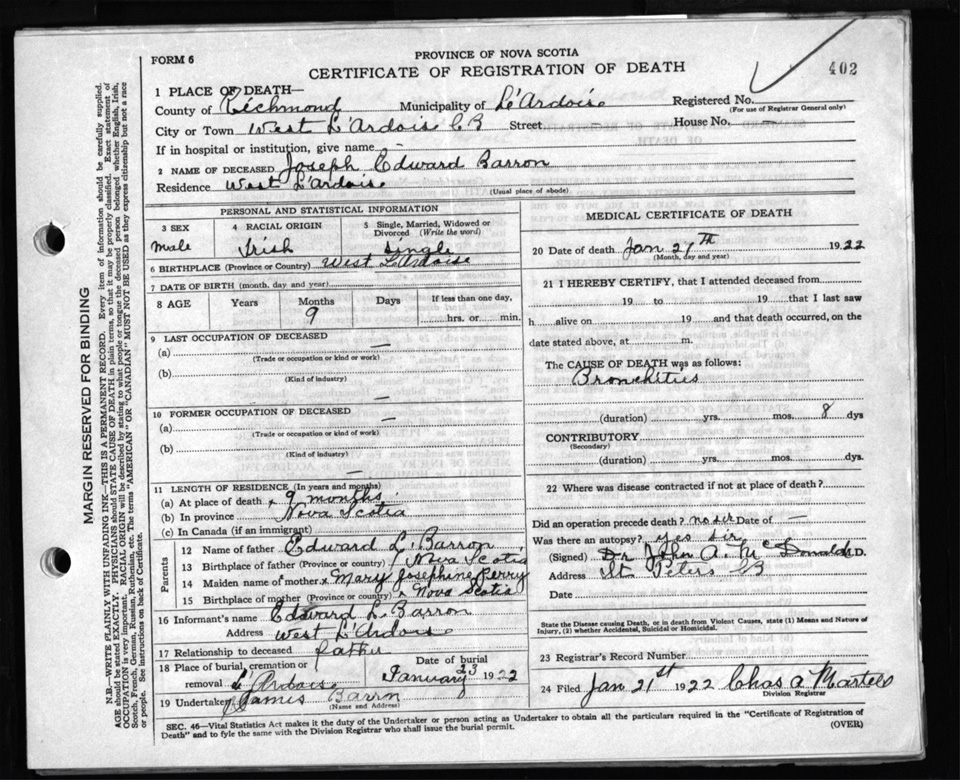 PROVINCE OF NOVA SCOTIA
FORM 6
CERTIFICATE OF REGISTRATION OF DEATH
402
1 PLACE OF DEATH—
County of Richmond Municipality of L'Ardoise Registered No.
(For use of Registrar General only)
City or Town West L'Ardois CB Street — House No. —
If in hospital or institution, give name —
2 NAME OF DECEASED Joseph Edward Barron
Residence West L'ardoise
(Usual place of abode)
PERSONAL AND STATISTICAL INFORMATION
3 SEX 4 RACIAL ORIGIN 5 Single, Married, Widowed or
Divorced (Write the word)
Male Irish Single
6 BIRTHPLACE (Province or Country) West L'Ardoise
7 DATE OF BIRTH (month, day and year)
8 AGE Years Months Days If less than one day,
9 hrs. or min.
9 LAST OCCUPATION OF DECEASED
(a) —
(Trade or occupation or kind of work)
(b)
(Kind of industry)
—
10 FORMER OCCUPATION OF DECEASED
(a) —
(Trade or occupation or kind of work)
(b)
(Kind of industry)
—
11 LENGTH OF RESIDENCE (In years and months)
(a) At place of death 9 months
(b) In province Nova Scotia
(c) In Canada (if an immigrant)
Parents
12 Name of father Edward L. Barron
13 Birthplace of father (Province or country) Nova Scotia
14 Maiden name of mother Mary Josephine Perry
15 Birthplace of mother (Province or country) Nova Scotia
16 Informant's name Edward L Barron
Address West L'Ardois
17 Relationship to deceased father
18 Place of burial, cremation or Date of burial
removal L'Ardois January 23 1922
19 Undertaker James Barrn
(Name and Address)
MEDICAL CERTIFICATE OF DEATH
20 Date of death Jan 21th 1922
(Month, day and year)
21 I HEREBY CERTIFY, that I attended deceased from
19 to 19 that I last saw
h alive on 19 and that death occurred, on the
date stated above, at m.
The CAUSE OF DEATH was as follows:
Bronchitus
(duration) yrs. mos. 8 dys
CONTRIBUTORY
(Secondary)
(duration) yrs. mos. dys.
22 Where was disease contracted if not at place of death?
Did an operation precede death? no sir Date of —
Was there an autopsy? yes sir
(Signed) Dr John A. McDonald M.D.
Address St. Peters CB
Date
State the Disease causing Death, or in death from Violent Causes, state (1) Means and Nature of
Injury, (2) whether Accidental, Suicidal or Homicidal.
23 Registrar's Record Number
24 Filed Jan 21st 1922 Chas A Martell
Division Registrar
SEC. 46—Vital Statistics Act makes it the duty of the Undertaker or person acting as Undertaker to obtain all the particulars required in the "Certificate of Registration of
Death" and to fyle the same with the Division Registrar who shall issue the burial permit.
(OVER)
MARGIN RESERVED FOR BINDING
N.B.—WRITE PLAINLY WITH UNFADING INK—THIS IS A PERMANENT RECORD. Every item of information should be carefully supplied.
AGE should be stated EXACTLY. PHYSICIANS should STATE CAUSE OF DEATH in plain terms, so that it may be properly classified. Exact statement of
OCCUPATION is very important. RACIAL ORIGIN will be described by stating to what people or tongue the deceased person belonged whether English, Irish,
Scotch, French, German, Russian, Ruthenian, etc. The terms "AMERICAN" OR "CANADIAN" MUST NOT BE USED as they express citizenship but not a race
or people. See instructions on back of Certificate.